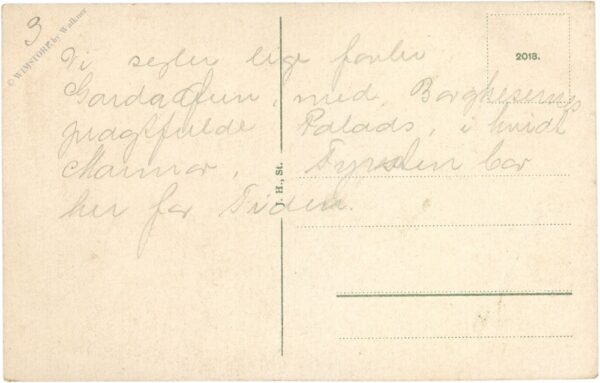 3
© WIMSTORE by Walkner
2018.
Vi sejler lige forbi
Gardaøen, med Borghesernes
pragtfulde Palads, i hvidt
Marmor. Fyrsten bor
her for Tiden.
J. H., St.